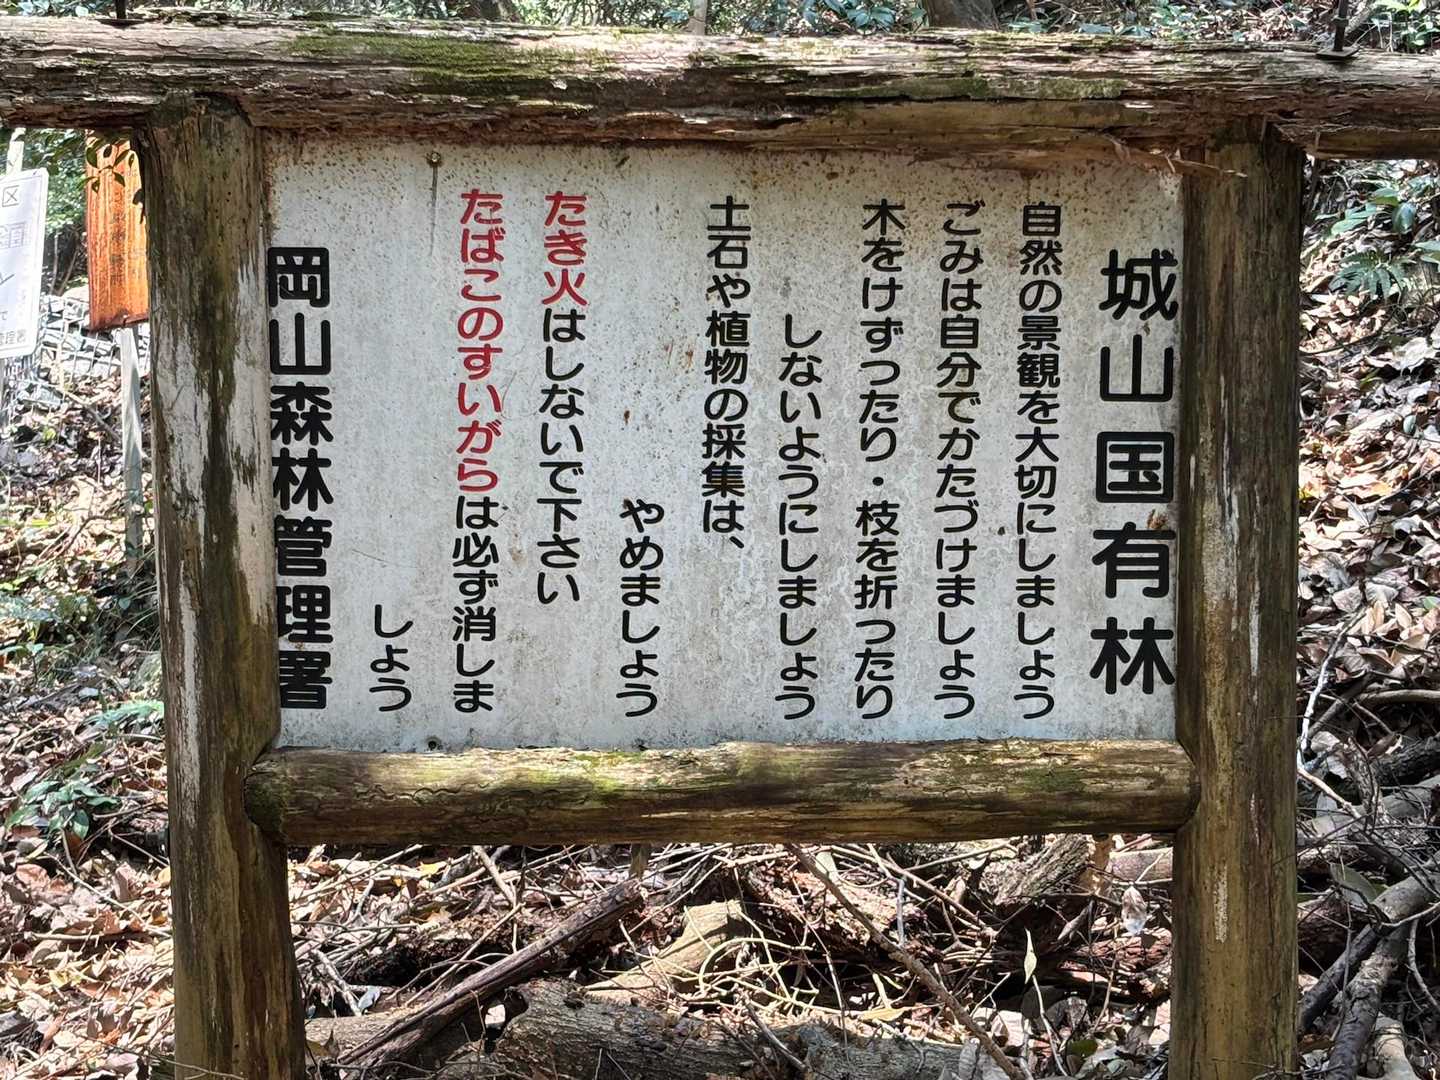 城山国有林
自然の景観を大切にしましょう
ごみは自分でかたづけましょう
木をけずったり・枝を折ったり
しないようにしましょう
土石や植物の採集は、
やめましょう
たき火はしないで下さい
たばこのすいがらは必ず消しま
しょう
岡山森林管理署